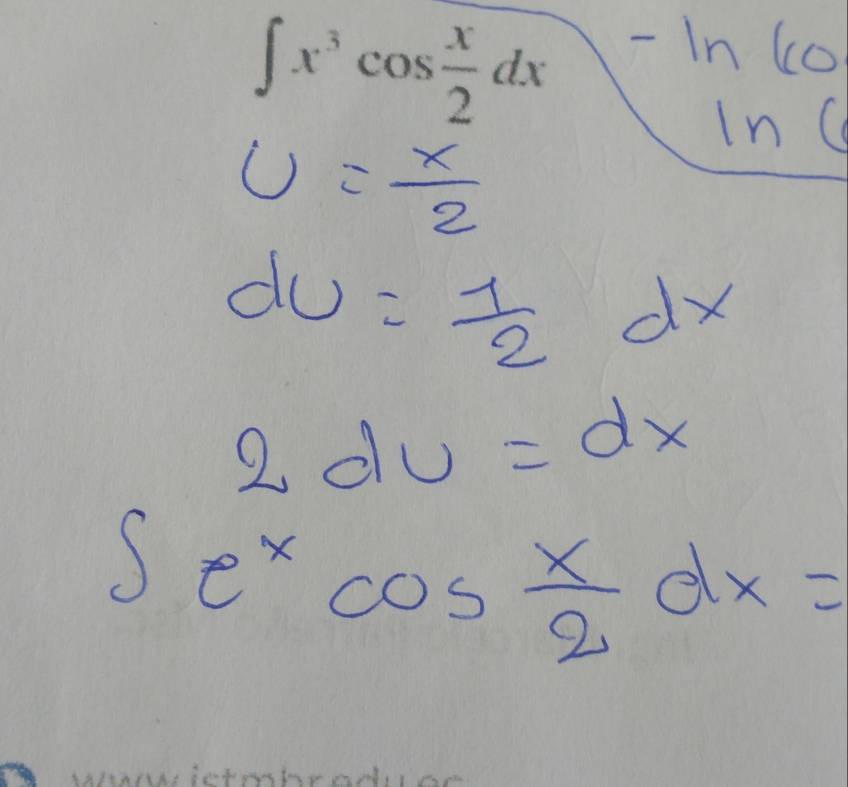 ∫ x³ cos x/2 dx
- ln (co
ln (
U = x/2
du = 1/2 dx
2 du = dx
∫ e^x cos x/2 dx =
www.istmbr.edu.ec